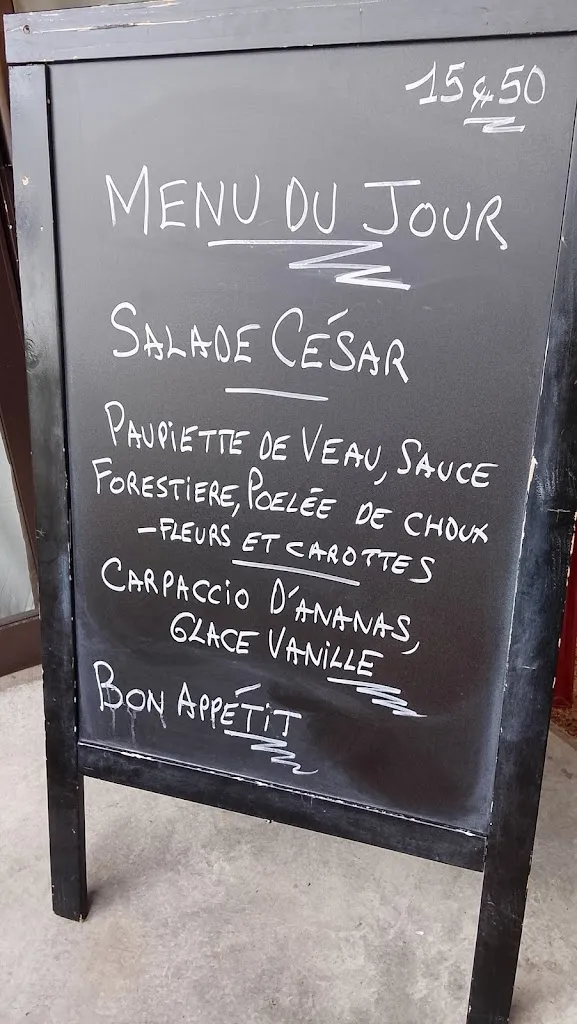 15€50
MENU DU JOUR
SALADE CÉSAR
PAUPIETTE DE VEAU, SAUCE
FORESTIERE, POELÉE DE CHOUX
-FLEURS ET CAROTTES
CARPACCIO D'ANANAS,
GLACE VANILLE
BON APPÉTIT